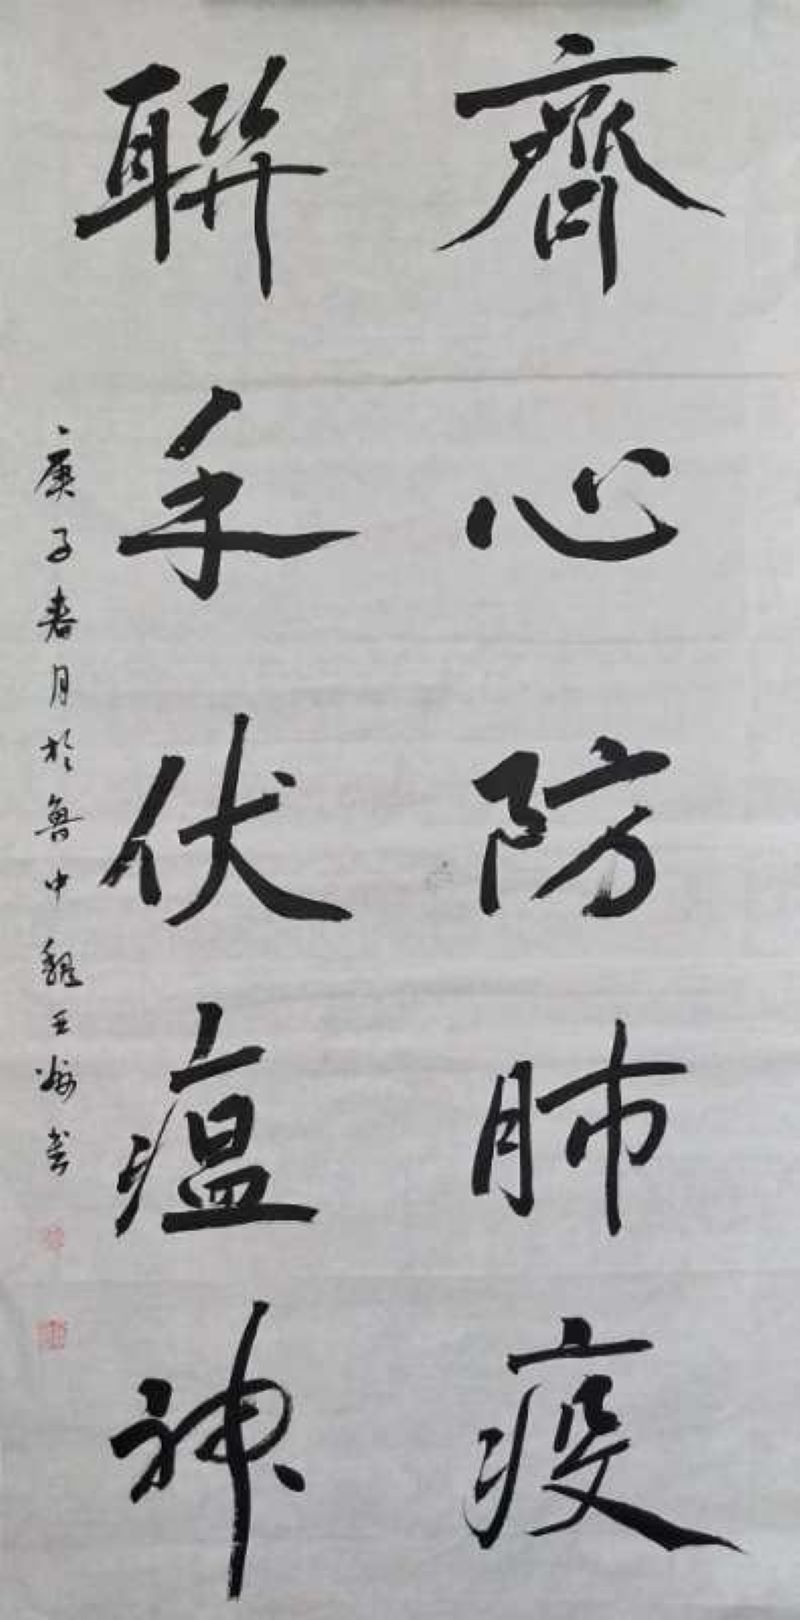 齊心防肺疫
聯手伏瘟神
庚子春月於魯中魏玉書